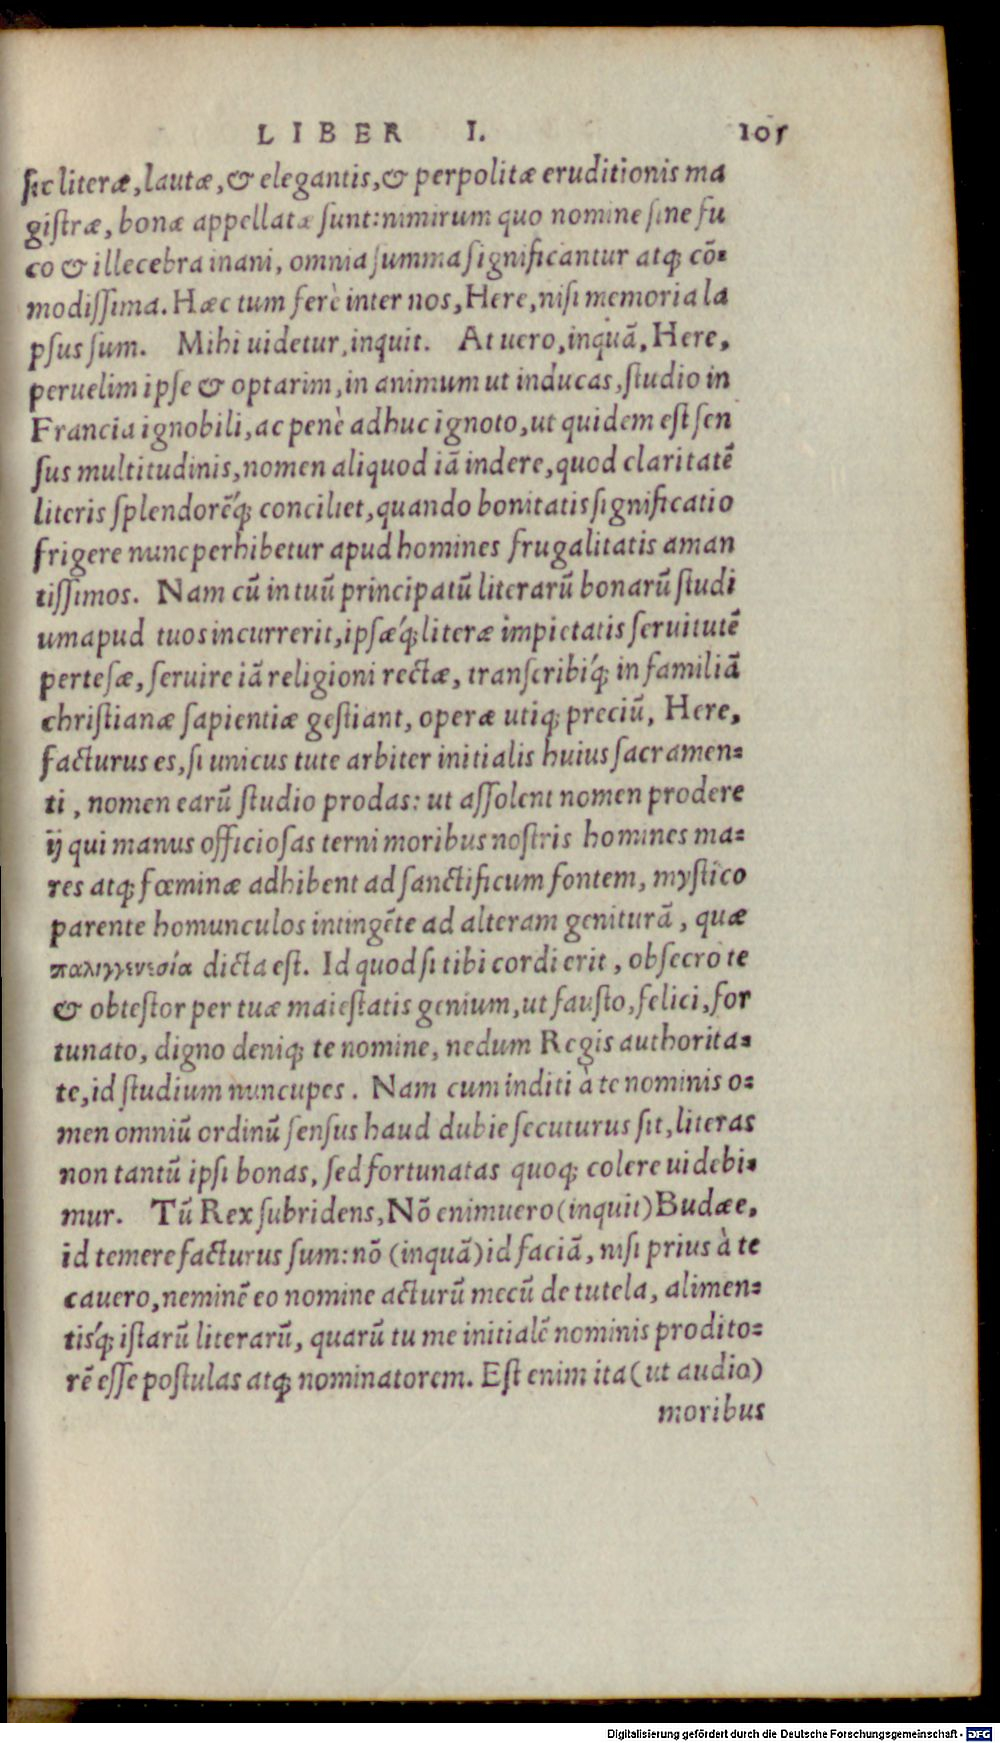 LIBER I. 105
sic literæ, lautæ, & elegantis, & perpolitæ eruditionis ma
gistræ, bonæ appellatæ sunt: nimirum quo nomine sine fu
co & illecebra inani, omnia summa significantur atq; cō-
modissima. Hæc tum ferè inter nos, Here, nisi memoria la
psus sum. Mihi uidetur, inquit. At uero, inquā, Here,
peruelim ipse & optarim, in animum ut inducas, studio in
Francia ignobili, ac penè adhuc ignoto, ut quidem est sen
sus multitudinis, nomen aliquod iā indere, quod claritatē
literis splendorēq́; conciliet, quando bonitatis significatio
frigere nunc perhibetur apud homines frugalitatis aman
tissimos. Nam cū in tuū principatū literarū bonarū studi
um apud tuos incurrerit, ipsæq́; literæ impietatis seruitutē
pertesæ, seruire iā religioni rectæ, transcribiq́; in familiā
christianæ sapientiæ gestiant, operæ utiq; preciū, Here,
facturus es, si unicus tute arbiter initialis huius sacramen-
ti, nomen earū studio prodas: ut assolent nomen prodere
ij qui manus officiosas terni moribus nostris homines ma-
res atq; fœminæ adhibent ad sanctificum fontem, mystico
parente homunculos intingēte ad alteram geniturā, quæ
παλιγγενεσία dicta est. Id quod si tibi cordi erit, obsecro te
& obtestor per tuæ maiestatis genium, ut fausto, felici, for
tunato, digno deniq; te nomine, nedum Regis authorita-
te, id studium nuncupes. Nam cum inditi à te nominis o-
men omniū ordinū sensus haud dubie secuturus sit, literas
non tantū ipsi bonas, sed fortunatas quoq; colere uidebi-
mur. Tū Rex subridens, Nō enimuero (inquit) Budæe,
id temere facturus sum: nō (inquā) id faciā, nisi prius à te
cauero, neminē eo nomine acturū mecū de tutela, alimen-
tisq́; istarū literarū, quarū tu me initialē nominis prodito-
rē esse postulas atq; nominatorem. Est enim ita (ut audio)
moribus
Digitalisierung gefördert durch die Deutsche Forschungsgemeinschaft - DFG